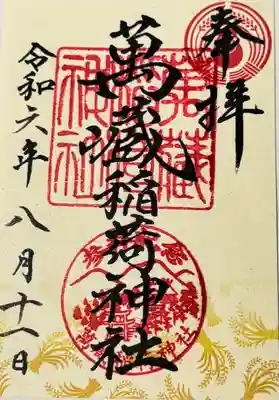 奉拝
萬蔵稲荷神社
令和六年八月十一日